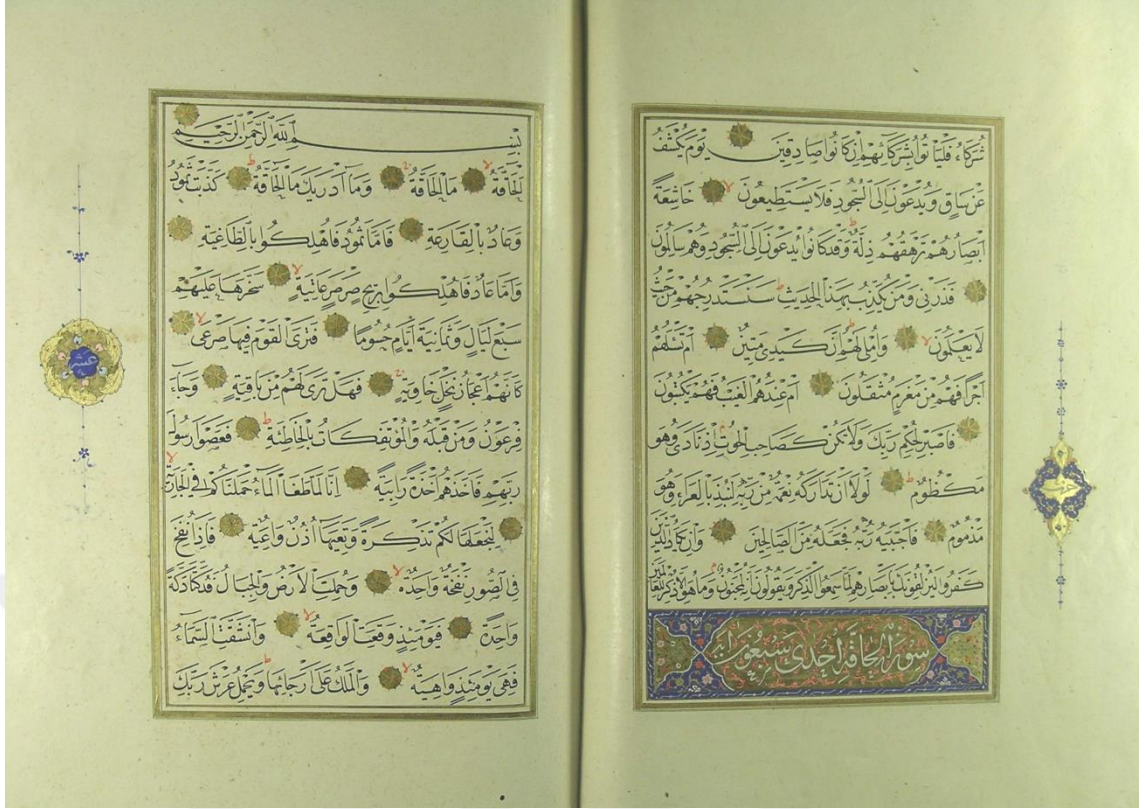 شُرَكَاءُ فَلْيَأْتُوا بِشُرَكَائِهِمْ اِنْ كَانُوا صَادِقِينَ يَوْمَ يُكْشَفُ
عَنْ سَاقٍ وَيُدْعَوْنَ اِلَى السُّجُودِ فَلَا يَسْتَطِيعُونَ خَاشِعَةً
اَبْصَارُهُمْ تَرْهَقُهُمْ ذِلَّةٌ وَقَدْ كَانُوا يُدْعَوْنَ اِلَى السُّجُودِ وَهُمْ سَالِمُونَ
فَذَرْنِي وَمَنْ يُكَذِّبُ بِهٰذَا الْحَدِيثِ سَنَسْتَدْرِجُهُمْ مِنْ حَيْثُ
لَا يَعْلَمُونَ وَاُمْلِي لَهُمْ اِنَّ كَيْدِي مَتِينٌ اَمْ تَسْئَلُهُمْ
اَجْرًا فَهُمْ مِنْ مَغْرَمٍ مُثْقَلُونَ اَمْ عِنْدَهُمُ الْغَيْبُ فَهُمْ يَكْتُبُونَ
فَاصْبِرْ لِحُكْمِ رَبِّكَ وَلَا تَكُنْ كَصَاحِبِ الْحُوتِ اِذْ نَادَى وَهُوَ
مَكْظُومٌ لَوْلَا اَنْ تَدَارَكَهُ نِعْمَةٌ مِنْ رَبِّهِ لَنُبِذَ بِالْعَرَاءِ وَهُوَ
مَذْمُومٌ فَاجْتَبٰيهُ رَبُّهُ فَجَعَلَهُ مِنَ الصَّالِحِينَ وَاِنْ يَكَادُ الَّذِينَ
كَفَرُوا لَيُزْلِقُونَكَ بِاَبْصَارِهِمْ لَمَّا سَمِعُوا الذِّكْرَ وَيَقُولُونَ اِنَّهُ لَمَجْنُونٌ وَمَا هُوَ اِلَّا ذِكْرٌ لِلْعَالَمِينَ
سورة الحاقة احدى وسبعون اية
حزب
بِسْمِ اللّٰهِ الرَّحْمٰنِ الرَّحِيمِ
اَلْحَاقَّةُ مَا الْحَاقَّةُ وَمَا اَدْرٰيكَ مَا الْحَاقَّةُ كَذَّبَتْ ثَمُودُ
وَعَادٌ بِالْقَارِعَةِ فَاَمَّا ثَمُودُ فَاُهْلِكُوا بِالطَّاغِيَةِ
وَاَمَّا عَادٌ فَاُهْلِكُوا بِرِيحٍ صَرْصَرٍ عَاتِيَةٍ سَخَّرَهَا عَلَيْهِمْ
سَبْعَ لَيَالٍ وَثَمَانِيَةَ اَيَّامٍ حُسُومًا فَتَرَى الْقَوْمَ فِيهَا صَرْعٰى
كَاَنَّهُمْ اَعْجَازُ نَخْلٍ خَاوِيَةٍ فَهَلْ تَرٰى لَهُمْ مِنْ بَاقِيَةٍ وَجَاءَ
فِرْعَوْنُ وَمَنْ قَبْلَهُ وَالْمُؤْتَفِكَاتُ بِالْخَاطِئَةِ فَعَصَوْا رَسُولَ
رَبِّهِمْ فَاَخَذَهُمْ اَخْذَةً رَابِيَةً اِنَّا لَمَّا طَغَا الْمَاءُ حَمَلْنَاكُمْ فِي الْجَارِيَةِ
لِنَجْعَلَهَا لَكُمْ تَذْكِرَةً وَتَعِيَهَا اُذُنٌ وَاعِيَةٌ فَاِذَا نُفِخَ
فِي الصُّورِ نَفْخَةٌ وَاحِدَةٌ وَحُمِلَتِ الْاَرْضُ وَالْجِبَالُ فَدُكَّتَا دَكَّةً
وَاحِدَةً فَيَوْمَئِذٍ وَقَعَتِ الْوَاقِعَةُ وَانْشَقَّتِ السَّمَاءُ
فَهِيَ يَوْمَئِذٍ وَاهِيَةٌ وَالْمَلَكُ عَلٰى اَرْجَائِهَا وَيَحْمِلُ عَرْشَ رَبِّكَ
عشر